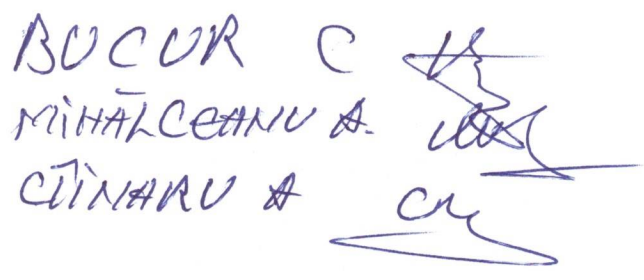 BUCUR C
MIHĂLCEANU A.
CÎINARU A